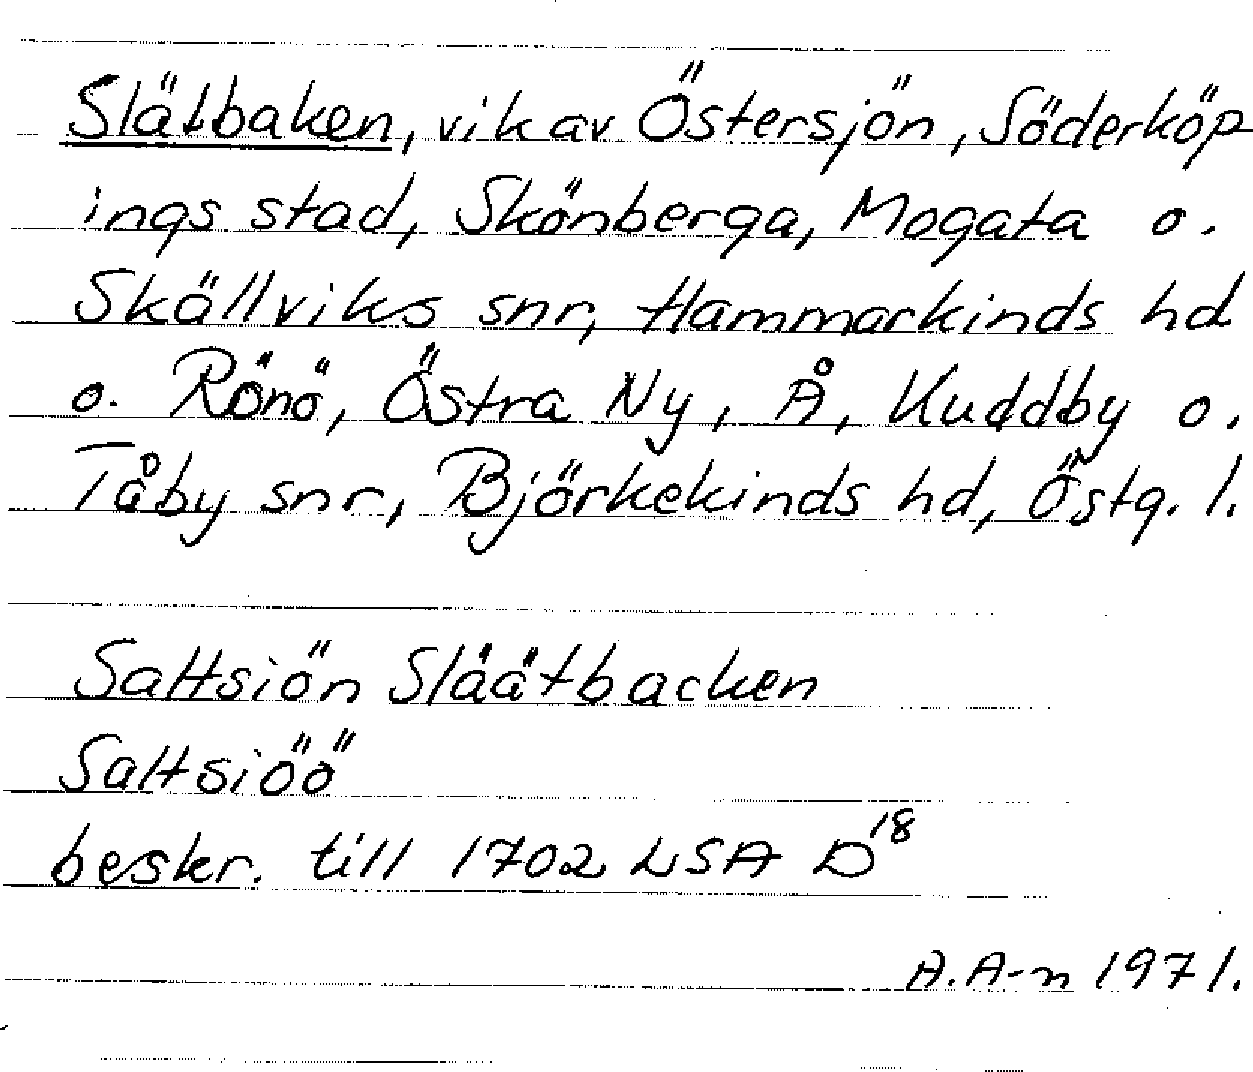 Slätbaken, vik av Östersjön, Söderköp
ings stad, Skönberga, Mogata o.
Skällviks snr, Hammarkinds hd
o. Rönö, Östra Ny, Å, Kuddby o.
Tåby snr, Björkekinds hd, Östg. l.
Saltsiön Släätbacken
Saltsiöö
beskr. till 1702 LSA D18
A. A-n 1971.